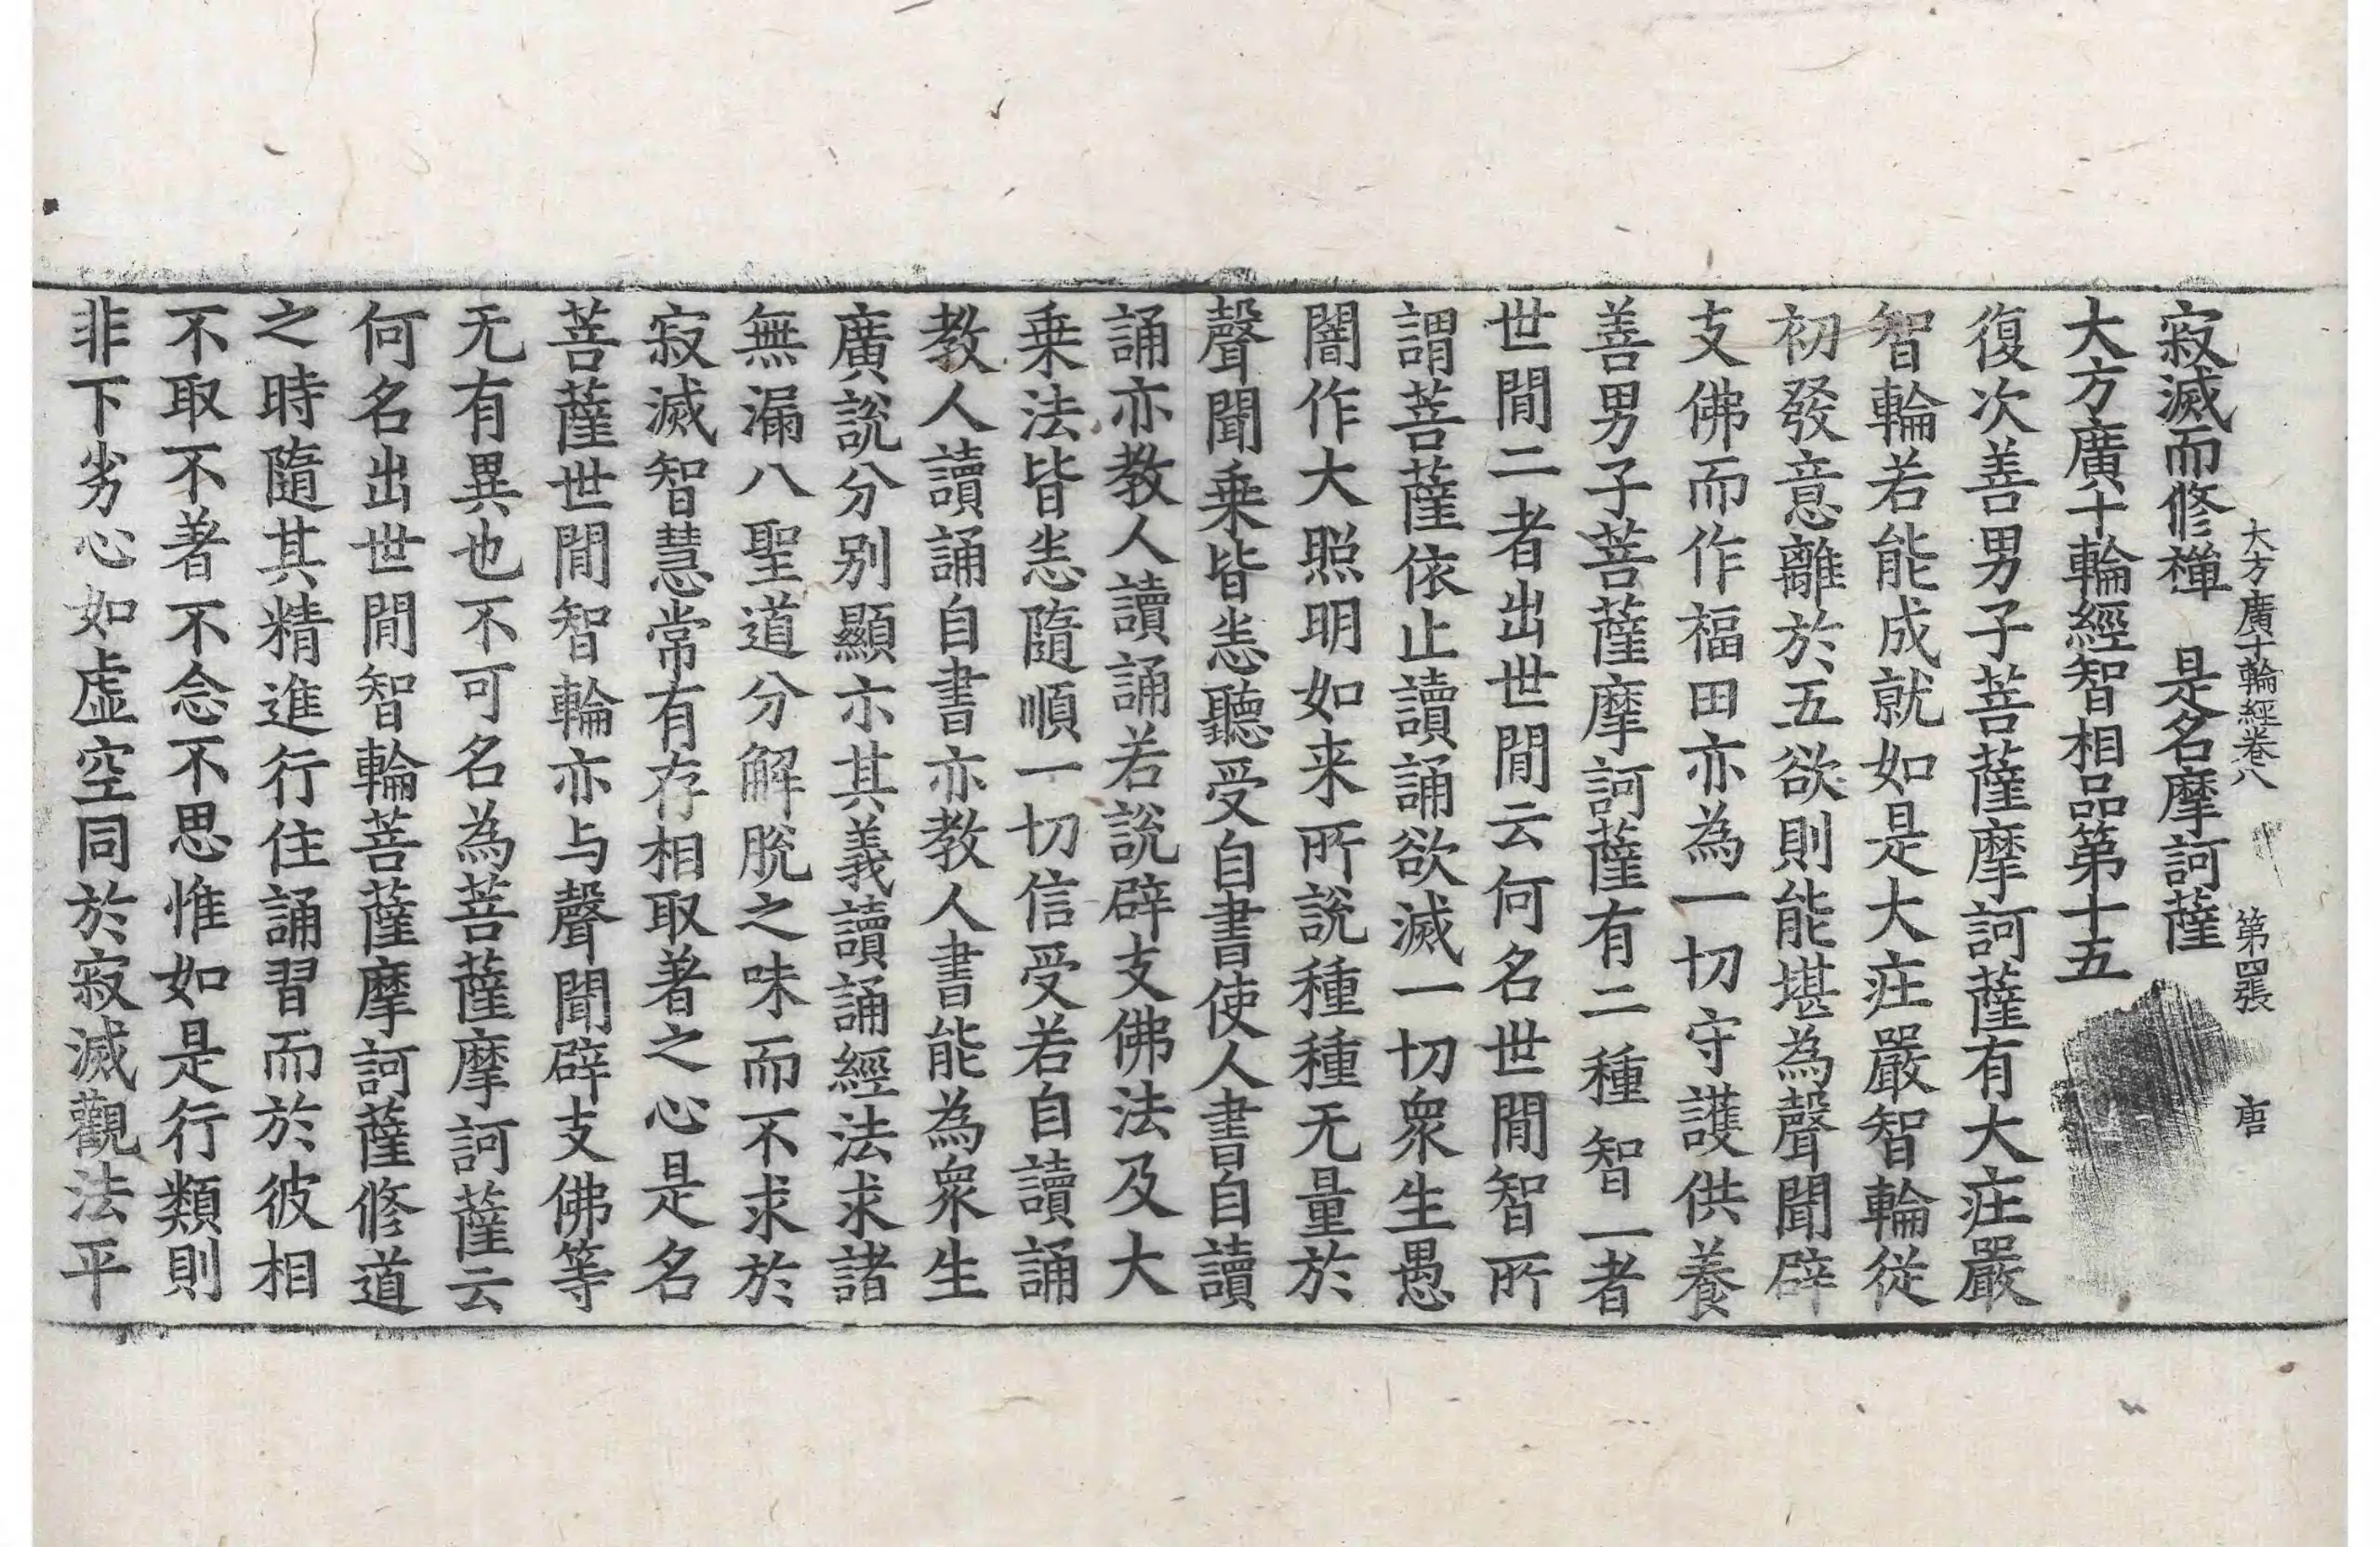 大方廣十輪經卷八 第四張 唐
寂滅而修禪 是名摩訶薩
大方廣十輪經智相品第十五
復次善男子菩薩摩訶薩有大庄嚴
智輪若能成就如是大庄嚴智輪從
初發意離於五欲則能堪為聲聞辟
支佛而作福田亦為一切守護供養
善男子菩薩摩訶薩有二種智一者
世閒二者出世閒云何名世閒智所
謂菩薩依止讀誦欲滅一切衆生愚
闇作大照明如来所說種種无量於
聲聞乗皆悉聽受自書使人書自讀
誦亦教人讀誦若說辟支佛法及大
乗法皆悉隨順一切信受若自讀誦
教人讀誦自書亦教人書能為衆生
廣說分別顯示其義讀誦經法求諸
無漏八聖道分解脫之味而不求於
寂滅智慧常有存相取著之心是名
菩薩世閒智輪亦与聲聞辟支佛等
无有異也不可名為菩薩摩訶薩云
何名出世閒智輪菩薩摩訶薩修道
之時隨其精進行住誦習而於彼相
不取不著不念不思惟如是行類則
非下劣心如虛空同於寂滅觀法平